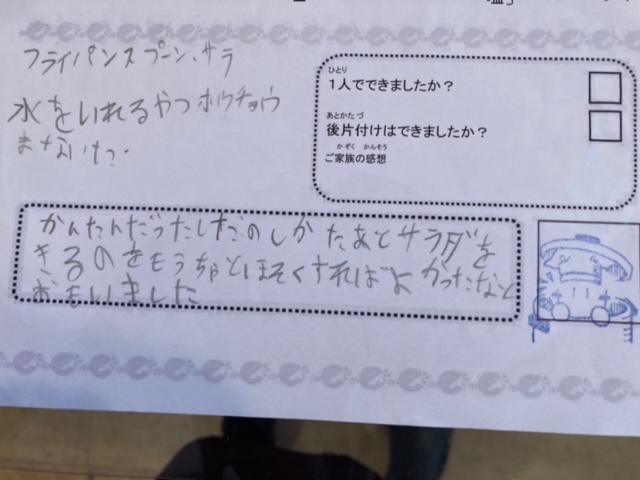 フライパンスプーン、サラ
水をいれるやつホウチョウ
まないた
ひとり
1人でできましたか？
あとかたづ
後片付けはできましたか？
かぞく かんそう
ご家族の感想
かんたんだったしたのしかたあとサラダを
きるのをもうちょとほそくすればよかったなと
おもいました